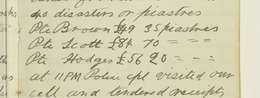 no disasters or piastres
Pte Brown £49 35 piastres
Pte Scott £84 70 = = =
Pte Hodges £56 20 = = =
at 11PM Police cpl visited our
cell and tendered receipts